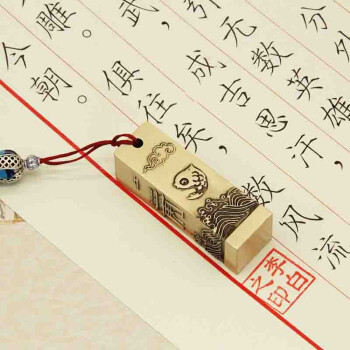 分外
引无数英雄
武，成吉思汗，
雕。俱往矣，数风流
今朝。
李白之印